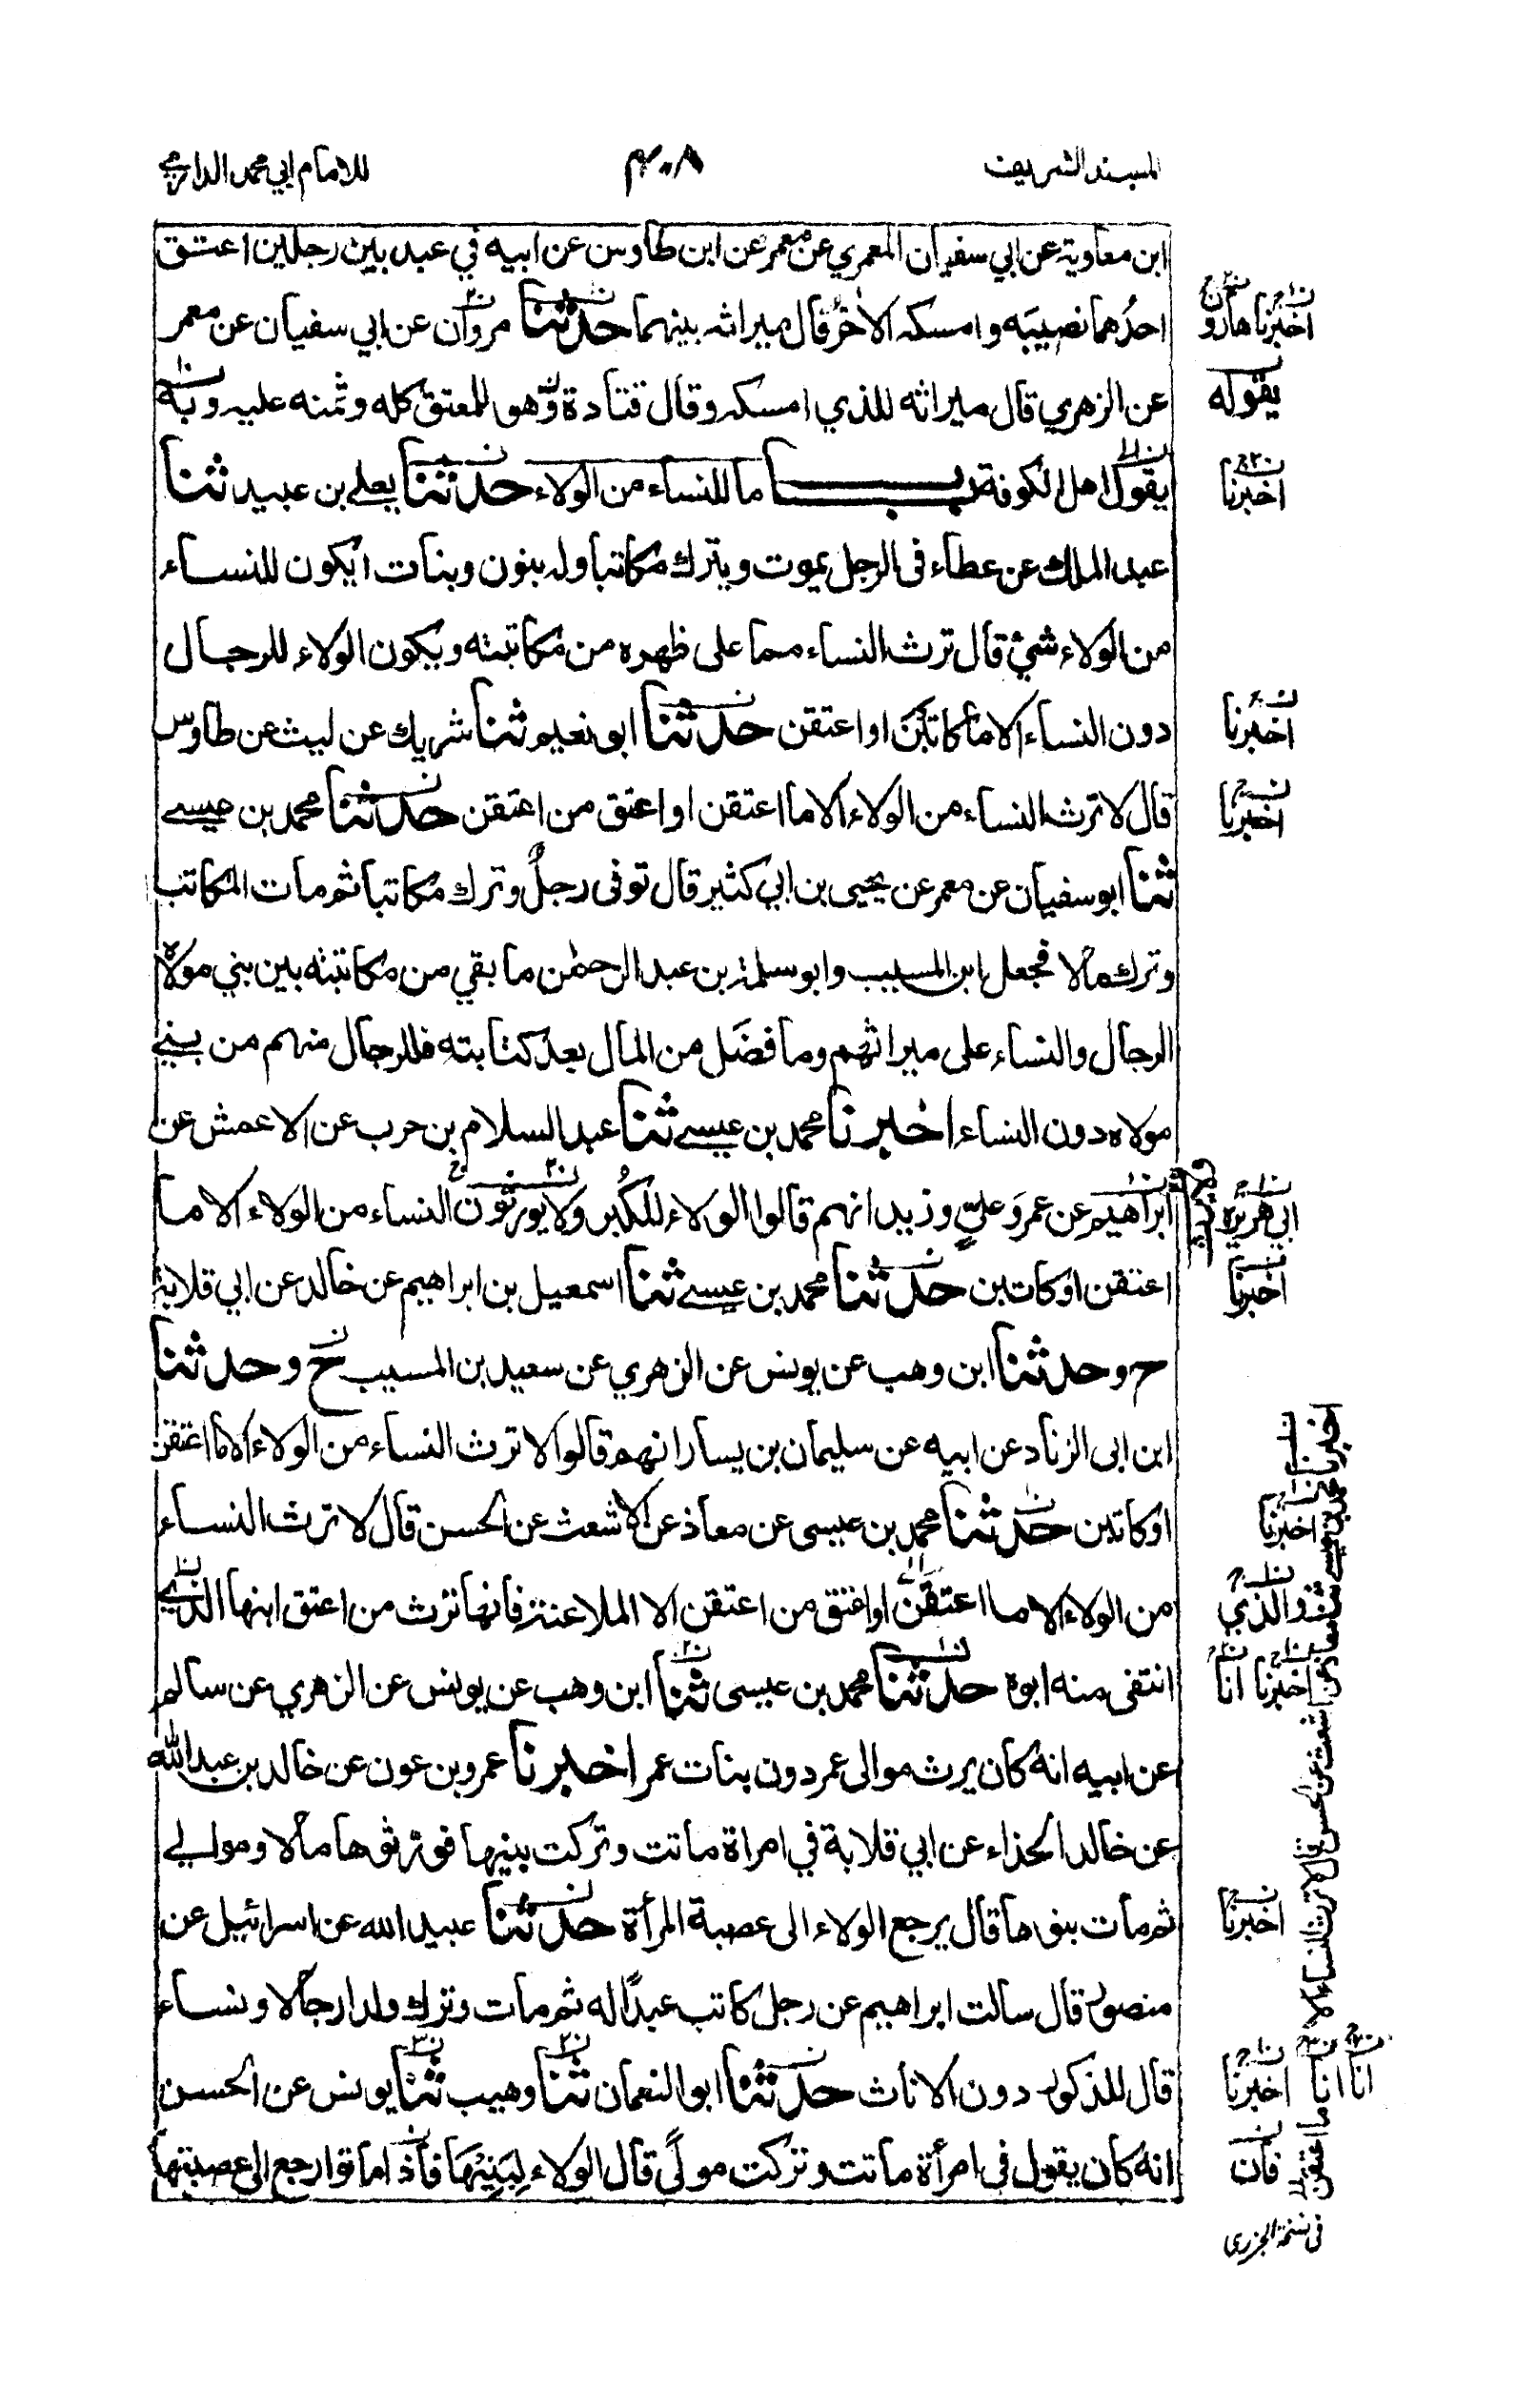 المسند الشريف
٤٠٨
للامام ابي محمد الدارمي
ابن معاوية عن ابي سفيان المعمري عن معمر عن ابن طاوس عن ابيه في عبد بين رجلين اعتق
احدُهما نصيبَه وامسكه الاخرُ قال ميراثه بينهما حدثنا مروان عن ابي سفيان عن معمر
عن الزهري قال ميراثه للذي امسكه وقال قتادة هو للمعتق كله وثمنه عليه وبه
يقول اهل الكوفة باب ما للنساء من الولاء حدثنا يعلى بن عبيد ثنا
عبد الملك عن عطاء فى الرجل يموت ويترك مكاتبا وله بنون وبنات ايكون للنساء
من الولاء شئ قال ترث النساء مما على ظهره من مكاتبته ويكون الولاء للرجال
دون النساء الا ما كاتبن او اعتقن حدثنا ابو نعيم ثنا شريك عن ليث عن طاوس
قال لا ترث النساء من الولاء الا ما اعتقن او اعتق من اعتقن حدثنا محمد بن عيسى
ثنا ابو سفيان عن معمر عن يحيى بن ابي كثير قال توفى رجلٌ وترك مكاتبا ثم مات المكاتب
وترك مالا فجعل ابن المسيب وابو سلمة بن عبد الرحمٰن ما بقي من مكاتبته بين بني مولاه
الرجال والنساء على ميراثهم وما فضَل من المال بعد كتابته فللرجال منهم من بني
مولاه دون النساء اخبرنا محمد بن عيسى ثنا عبد السلام بن حرب عن الاعمش عن
ابراهيم عن عمر وعليٍ وزيد انهم قالوا الولاء للكُبر ولا يورثون النساء من الولاء الا ما
اعتقن او كاتبن حدثنا محمد بن عيسى ثنا اسمعيل بن ابراهيم عن خالد عن ابي قلابة
ح وحدثنا ابن وهب عن يونس عن الزهري عن سعيد بن المسيب ح وحدثنا
ابن ابى الزناد عن ابيه عن سليمان بن يسار انهم قالوا لا ترث النساء من الولاء الا ما اعتقن
او كاتبن حدثنا محمد بن عيسى عن معاذ عن الاشعث عن الحسن قال لا ترث النساء
من الولاء الا ما اعتقن او اعتق من اعتقن الا الملاعنة فانها ترث من اعتق ابنها الذي
انتفى منه ابوه حدثنا محمد بن عيسى ثنا ابن وهب عن يونس عن الزهري عن سالم
عن ابيه انه كان يرث موالى عمر دون بنات عمر اخبرنا عمرو بن عون عن خالد بن عبد الله
عن خالد الحذاء عن ابي قلابة في امراة ماتت وتركت بنيها فورثوها مالا وموالي
ثم مات بنوها قال يرجع الولاء الى عصبة المرأة حدثنا عبيد الله عن اسرائيل عن
منصور قال سالت ابراهيم عن رجل كاتب عبدًا له ثم مات وترك ولدا رجالا ونساء
قال للذكور دون الاناث حدثنا ابو النعمان ثنا وهيب ثنا يونس عن الحسن
انه كان يقول فى امرأة ماتت وتركت مولًى قال الولاء لِبَنِيْهَا فاذا ماتوا رجع الى عصبتها
اخبرنا هارون
يقوله
اخبرنا
اخبرنا
اخبرنا
ابي هريرة
اخبرنا
اخبرنا
والذي
اخبرنا انا
اخبرنا
اخبرنا انا انا
فان
اخبرنا محمد بن عيسى ثنا معاذ عن اشعث عن الحسن قال لا ترث النساء الا ما اعتقن
فى نسخة الجزرى